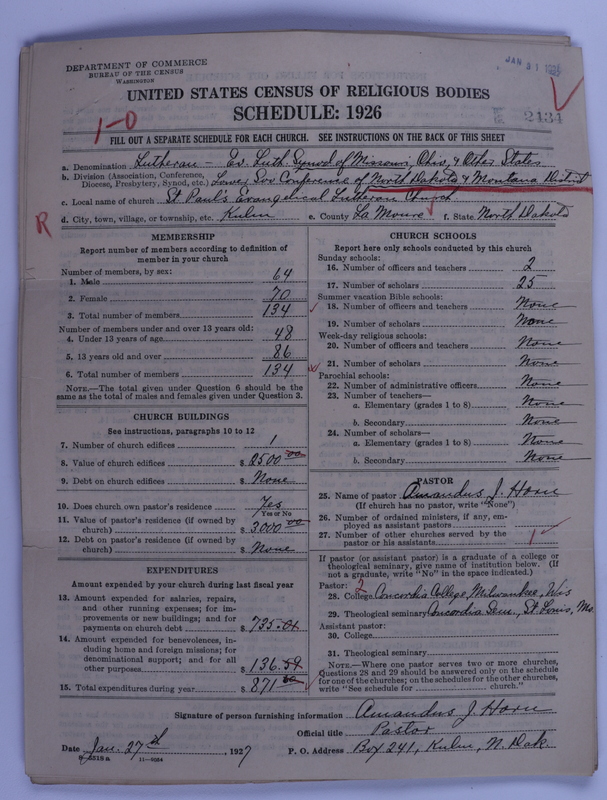 DEPARTMENT OF COMMERCE
BUREAU OF THE CENSUS
WASHINGTON
JAN 31
UNITED STATES CENSUS OF RELIGIOUS BODIES
SCHEDULE: 1926
2434
1-0
FILL OUT A SEPARATE SCHEDULE FOR EACH CHURCH. SEE INSTRUCTIONS ON THE BACK OF THIS SHEET
a. Denomination Lutheran - Ev. Luth. Synod of Missouri, Ohio, & Other States
b. Division (Association, Conference, Diocese, Presbytery, Synod, etc.) Conference of North Dakota & Montana District
c. Local name of church St. Paul's Evangelical Lutheran Church
R
d. City, town, village, or township, etc. Kulm e. County La Moure f. State North Dakota
MEMBERSHIP
Report number of members according to definition of
member in your church
Number of members, by sex:
1. Male 64
2. Female 70
3. Total number of members 134
Number of members under and over 13 years old:
4. Under 13 years of age 48
5. 13 years old and over 86
6. Total number of members 134
NOTE.—The total given under Question 6 should be the
same as the total of males and females given under Question 3.
CHURCH BUILDINGS
See instructions, paragraphs 10 to 12
7. Number of church edifices 1
8. Value of church edifices $ 2500 00
9. Debt on church edifices $ None
10. Does church own pastor's residence Yes
Yes or No
11. Value of pastor's residence (if owned by
church) $ 3000 00
12. Debt on pastor's residence (if owned by
church) $ None
EXPENDITURES
Amount expended by your church during last fiscal year
13. Amount expended for salaries, repairs,
and other running expenses; for im-
provements or new buildings; and for
payments on church debt $ 735.01
14. Amount expended for benevolences, in-
cluding home and foreign missions; for
denominational support; and for all
other purposes $ 136.59
15. Total expenditures during year $ 871 60
CHURCH SCHOOLS
Report here only schools conducted by this church
Sunday schools:
16. Number of officers and teachers 2
17. Number of scholars 25
Summer vacation Bible schools:
18. Number of officers and teachers None
19. Number of scholars None
Week-day religious schools:
20. Number of officers and teachers None
21. Number of scholars None
Parochial schools:
22. Number of administrative officers None
23. Number of teachers—
a. Elementary (grades 1 to 8) None
b. Secondary None
24. Number of scholars—
a. Elementary (grades 1 to 8) None
b. Secondary None
PASTOR
25. Name of pastor Amandus J. Horn
(If church has no pastor, write "None")
26. Number of ordained ministers, if any, em-
ployed as assistant pastors
27. Number of other churches served by the
pastor or his assistants 1
If pastor (or assistant pastor) is a graduate of a college or
theological seminary, give name of institution below. (If
not a graduate, write "No" in the space indicated.)
Pastor: 2
28. College Concordia College, Milwaukee, Wis
29. Theological seminary Concordia Sem., St. Louis, Mo.
Assistant pastor:
30. College
31. Theological seminary
NOTE.—Where one pastor serves two or more churches,
Questions 28 and 29 should be answered only on the schedule
for one of the churches; on the schedules for the other churches,
write "See schedule for church."
Signature of person furnishing information Amandus J. Horn
Official title Pastor
Date Jan. 27th, 1927 P. O. Address Box 241, Kulm, N. Dak.
11-9264